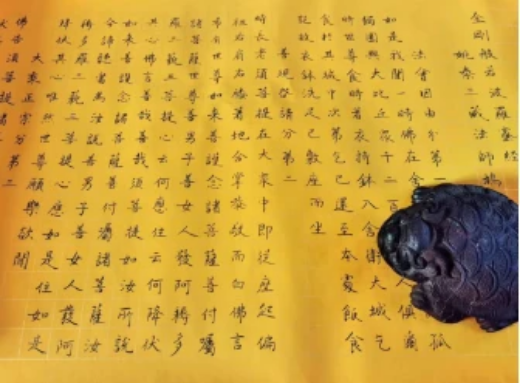 金剛般若波羅蜜經
姚秦三藏法師鳩
法會因由分第一
如是我聞一時佛在舍 孤
獨園與大比丘眾千二百 人俱爾
時世尊食時著衣持鉢入舍衛大城乞
食於其城中次第乞已還至本處飯食
訖收衣鉢洗足已敷座而坐
善現啟請分第二
時長老須菩提在大眾中即從座起偏
袒右肩右膝著地合掌恭敬而白佛言
希有世尊如來善護念諸菩薩善付囑
諸菩薩世尊善男子善女人發阿耨多
羅三藐三菩提心應云何住云何降伏
其心佛言善哉善哉須菩提如汝所說
如來善護念諸菩薩善付囑諸菩薩汝
今諦聽當為汝說善男子善女人發阿
耨多羅三藐三菩提心應如是住如是
降伏其心唯然世尊願樂欲聞
大乘正宗分第三
佛告須菩提